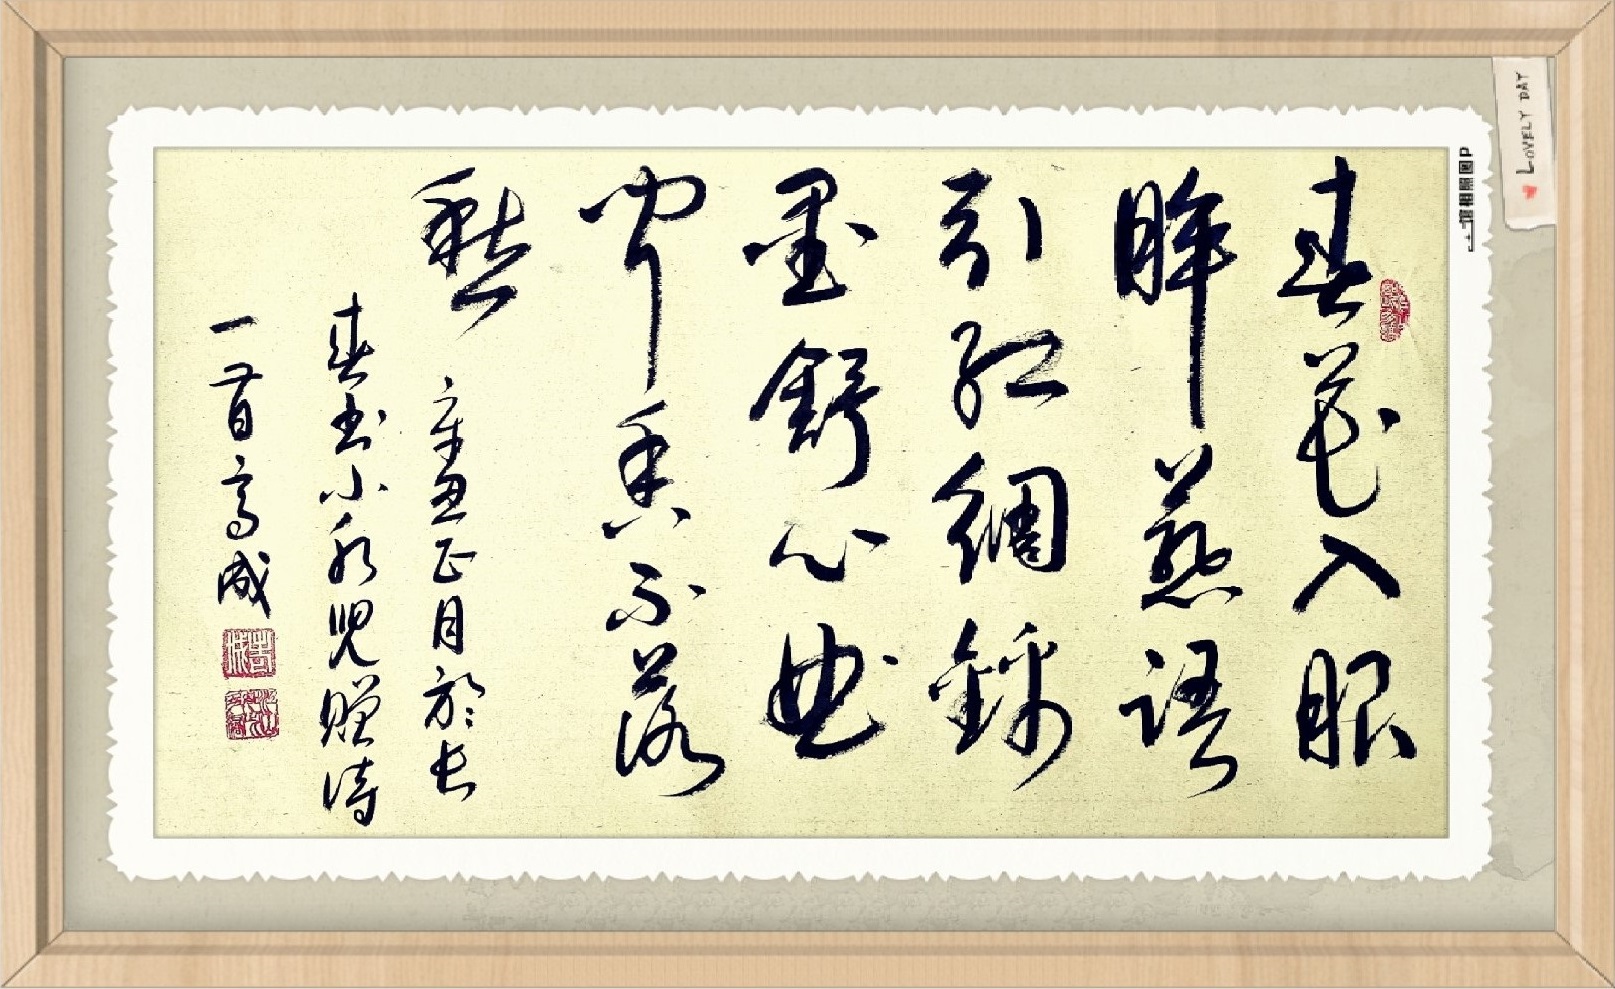 春花入眼
眸燕語
引红綢錦
墨舒心曲
闻香不落
愁
辛丑正月於长
春书小兒赠诗
一首高成
LOVELY DAY